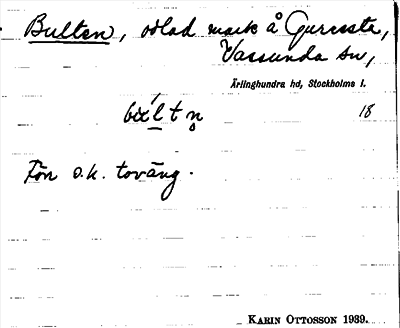 Bulten, odlad mark å Gurresta,
Vassunda sn,
Ärlinghundra hd, Stockholms l.
bɯl̀tn̥ 18
Förr s.k. toväng.
KARIN OTTOSSON 1939.